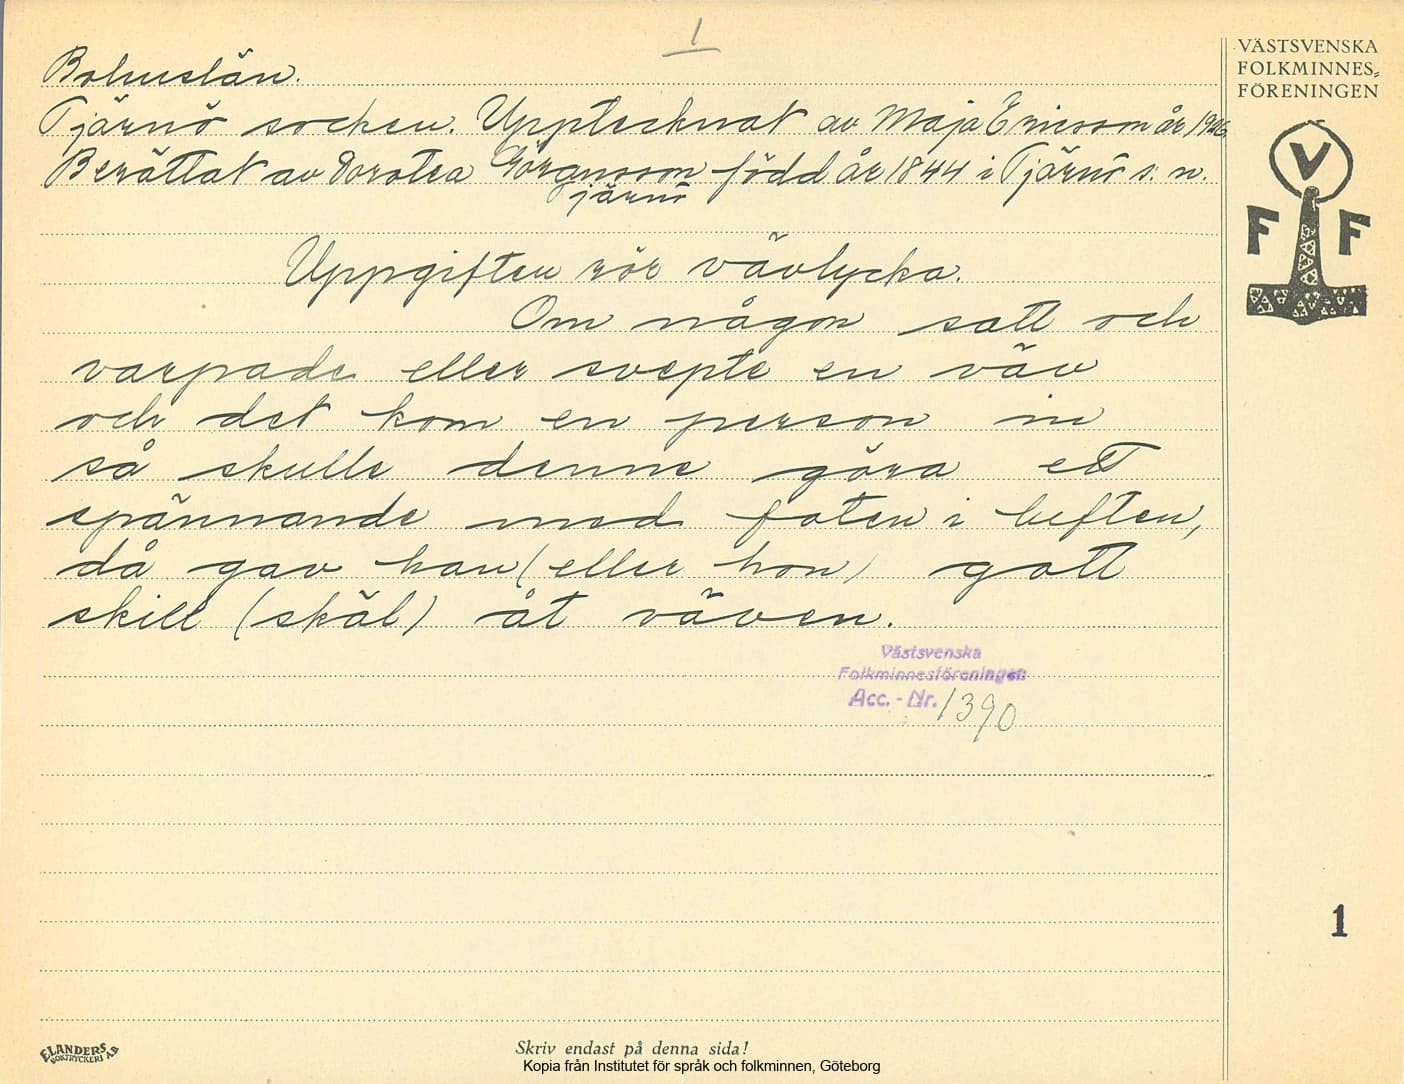 1
VÄSTSVENSKA
FOLKMINNES-
FÖRENINGEN
V
F F
Bohuslän.
Tjärnö socken. Upptecknat av Maja Ericsson år 1926
Berättat av Dorotea Görgnsson född år 1844 i Tjärnö s. n.
Tjärnö
Uppgiften rör vävlycka.
Om någon satt och
varpade eller svepte en väv
och det kom en person in
så skulle denne göra ett
spännande med foten i luften,
då gav han (eller hon) gott
skill (skäl) åt väven.
Västsvenska
Folkminnesföreningen
Acc. - Nr. 1390
1
ELANDERS
BOKTRYCKERI AB
Skriv endast på denna sida!
Kopia från Institutet för språk och folkminnen, Göteborg